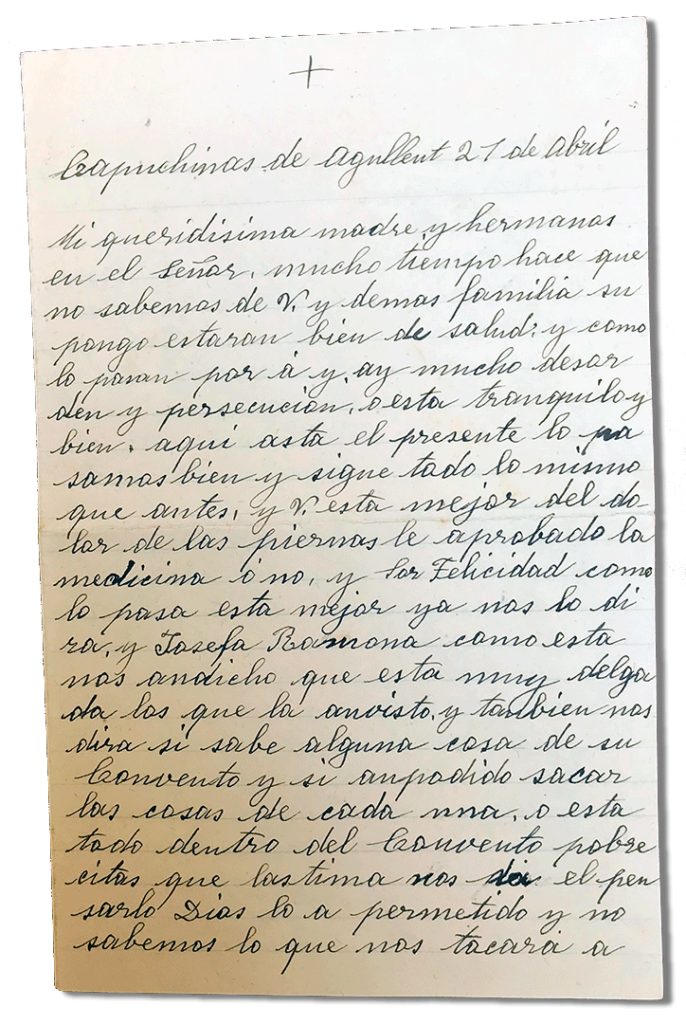 +
Capuchinas de Agullent 21 de Abril
Mi queridisima madre y hermanas
en el Señor, mucho tiempo hace que
no sabemos de V. y demas familia su
pongo estaran bien de salud: y como
lo pasan por á y, ay mucho desor
den y persecucion, o esta tranquilo y
bien. aqui asta el presente lo pa
samos bien y sigue todo lo mismo
que antes, y V. esta mejor del do-
lor de las piernas le aprobado la
medicina ó no, y Sor Felicidad como
lo pasa esta mejor ya nos lo di
ra, y Josefa Ramona como esta
nos andicho que esta muy delga
da los que la anvisto, y tanbien nos
dira si sabe alguna cosa de su
Convento y si anpodido sacar
las cosas de cada una, o esta
todo dentro del Convento pobre
citas que lastima nos da el pen
sarlo Dios lo a permetido y no
sabemos lo que nos tocará a